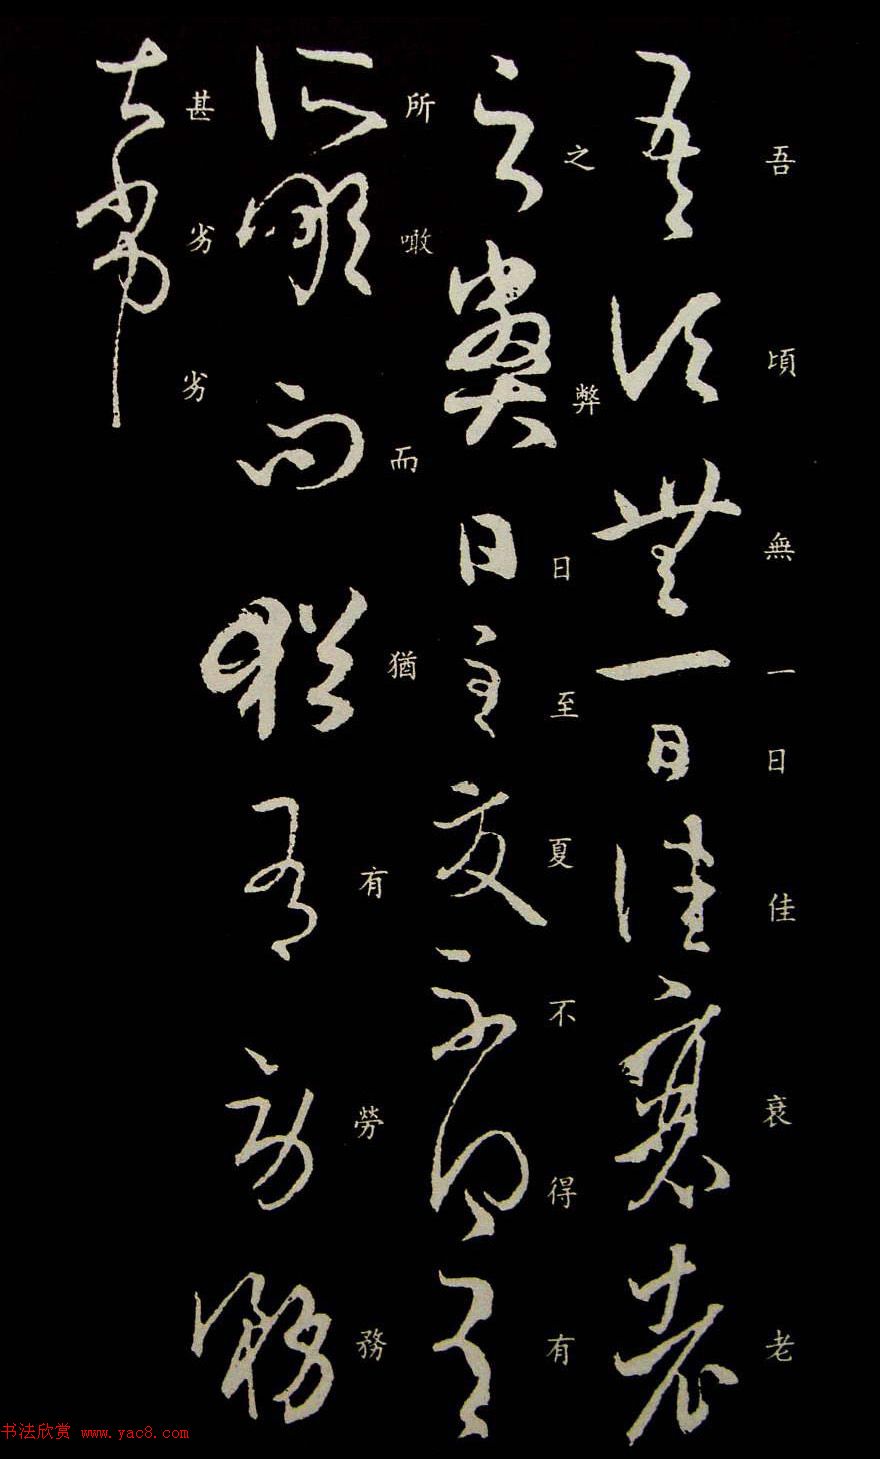 吾頃無一日佳衰老
之弊日至夏不得有
所噉而猶有勞務
甚劣劣
书法欣赏 www.yac8.com